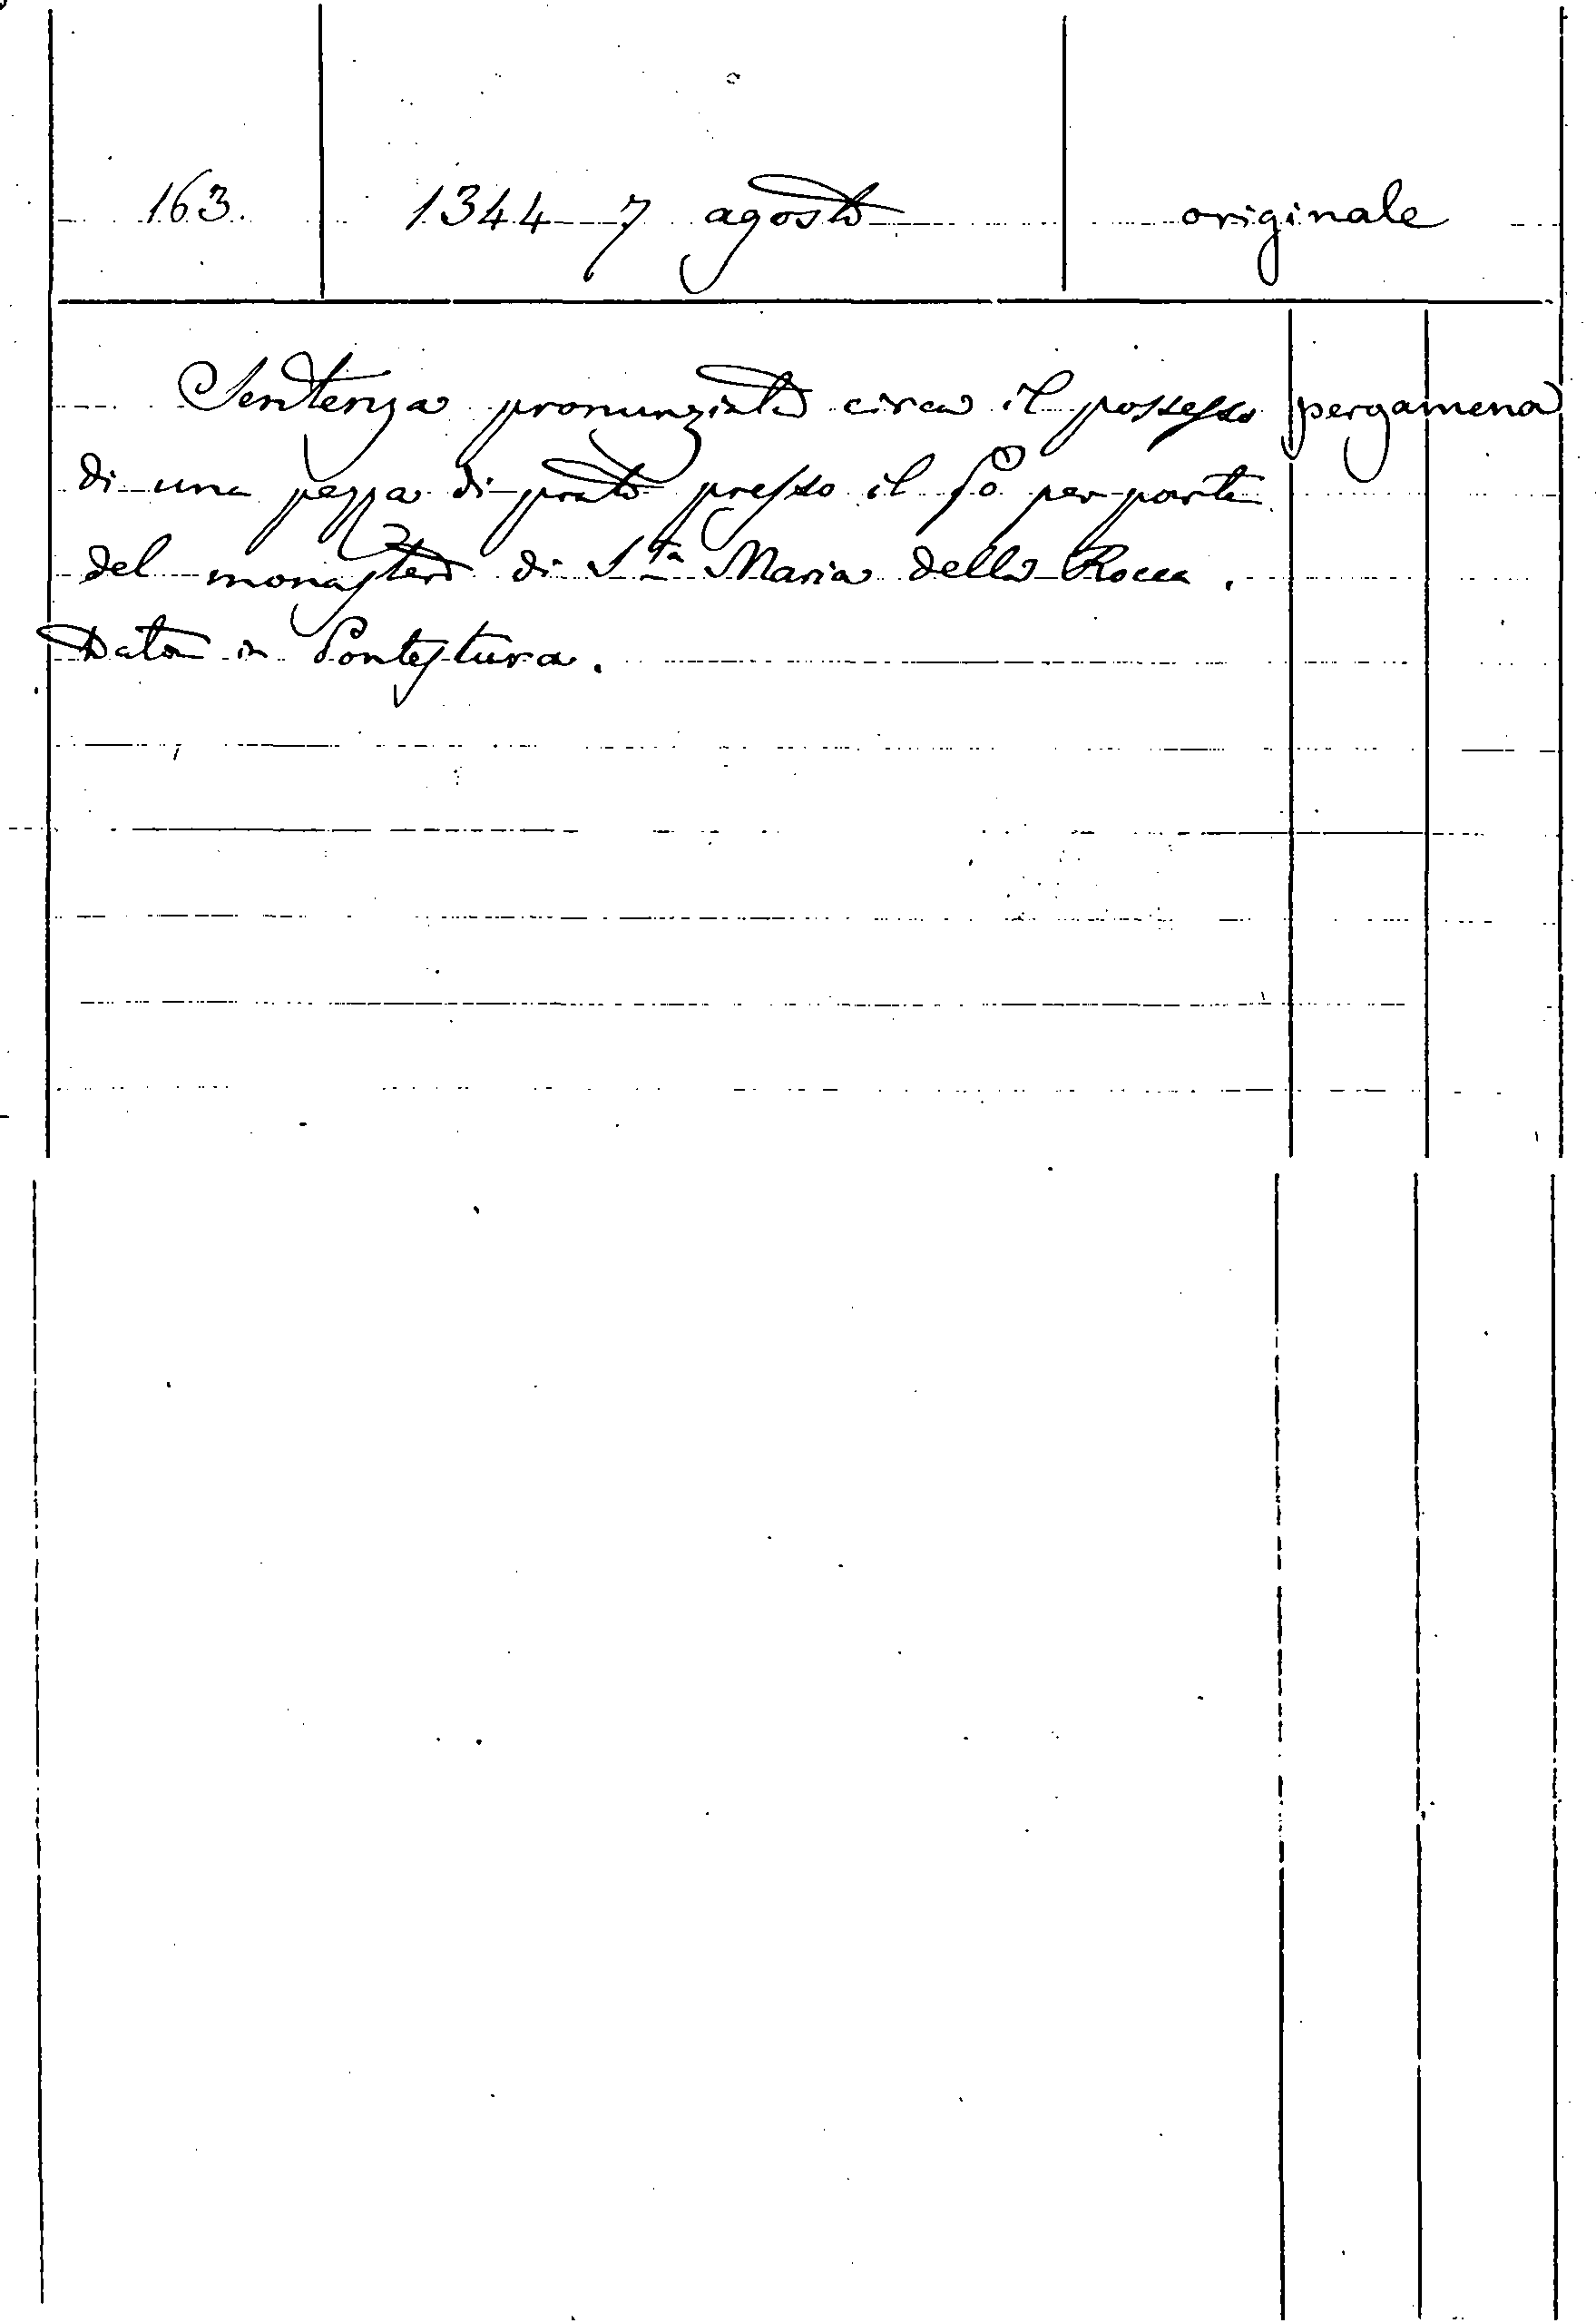 163. 1344 7 agosto originale
Sentenza pronunziata circa il possesso pergamena
di una pezza di prato presso il Po per parte
del monastero di S.ta Maria della Rocca.
Data in Pontestura.